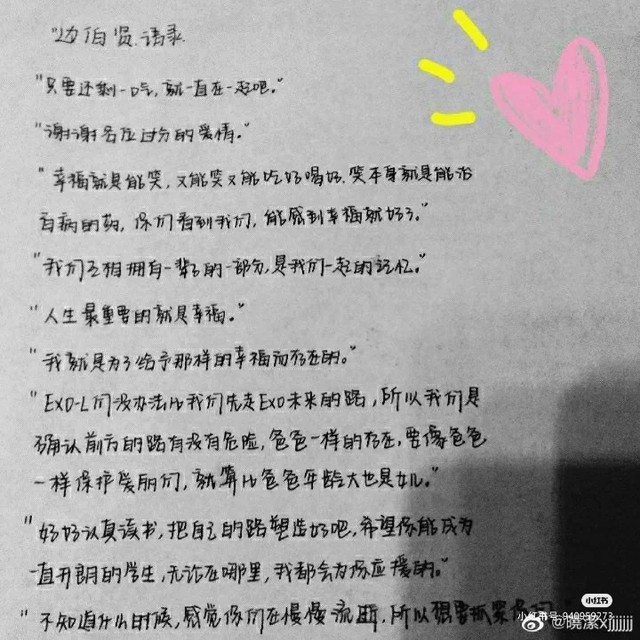 "边伯贤.语录.
"只要还剩一口气,就一直在一起吧。"
"谢谢名正过分的爱情。"
"幸福就是能笑,又能笑又能吃好喝好.笑本身就是能治
百病的药,你们看到我们,能感到幸福就好了。"
"我们互相拥有一辈子的一部分,是我们一起的记忆。"
"人生最重要的就是幸福。"
"我就是为了给予那样的幸福而存在的。"
"EXO-L们没办法比我们先走EXO未来的路,所以我们是
确认前方的路有没有危险,爸爸一样的存在,要像爸爸
一样保护爱丽们,就算比爸爸年龄大也是女儿。"
"好好认真读书,把自己的路塑造好吧,希望你能成为
一直开朗的学生,无论在哪里,我都会为你应援的。"
"不知道什么时候,感觉你们在慢慢流逝,所以想要抓紧你
小红书
小红书号:940959273
@晓潆xjjjjjj